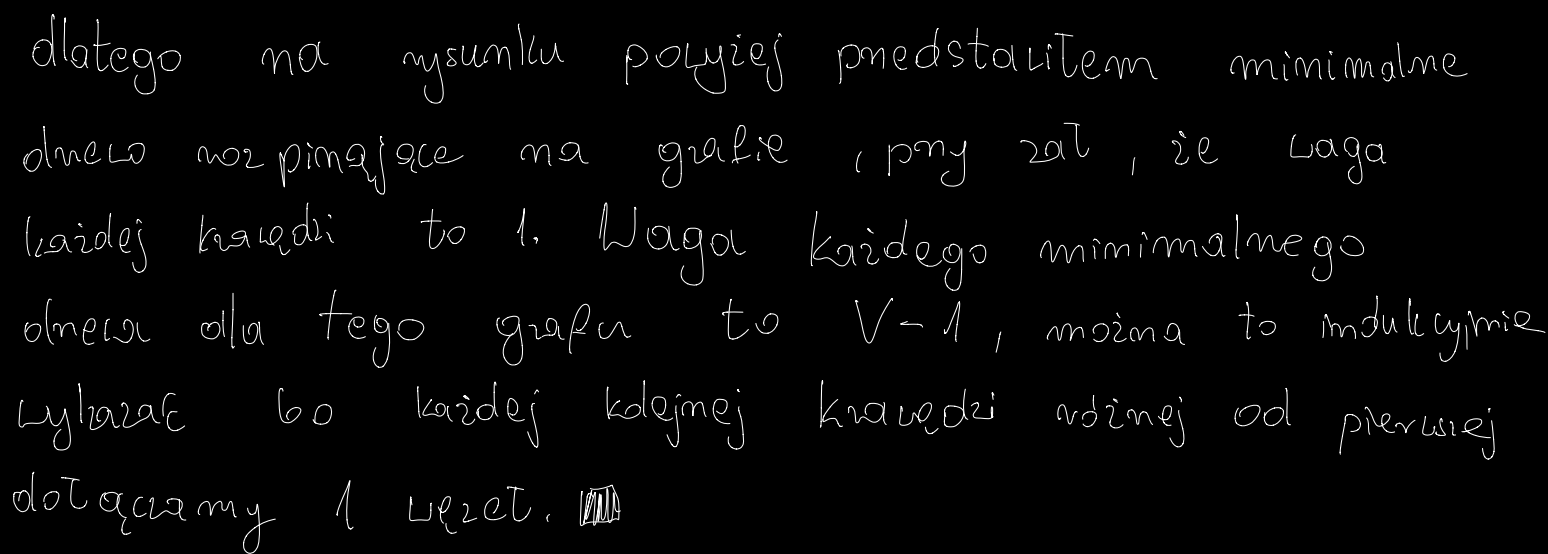 dlatego na rysunku powyżej przedstawiłem minimalne
drzewo rozpinające na grafie , przy zał , że waga
każdej krawędzi to 1. Waga każdego minimalnego
drzewa dla tego grafu to V-1, można to indukcyjnie
wykazać bo każdej kolejnej krawędzi różnej od pierwszej
dołączamy 1 węzeł.